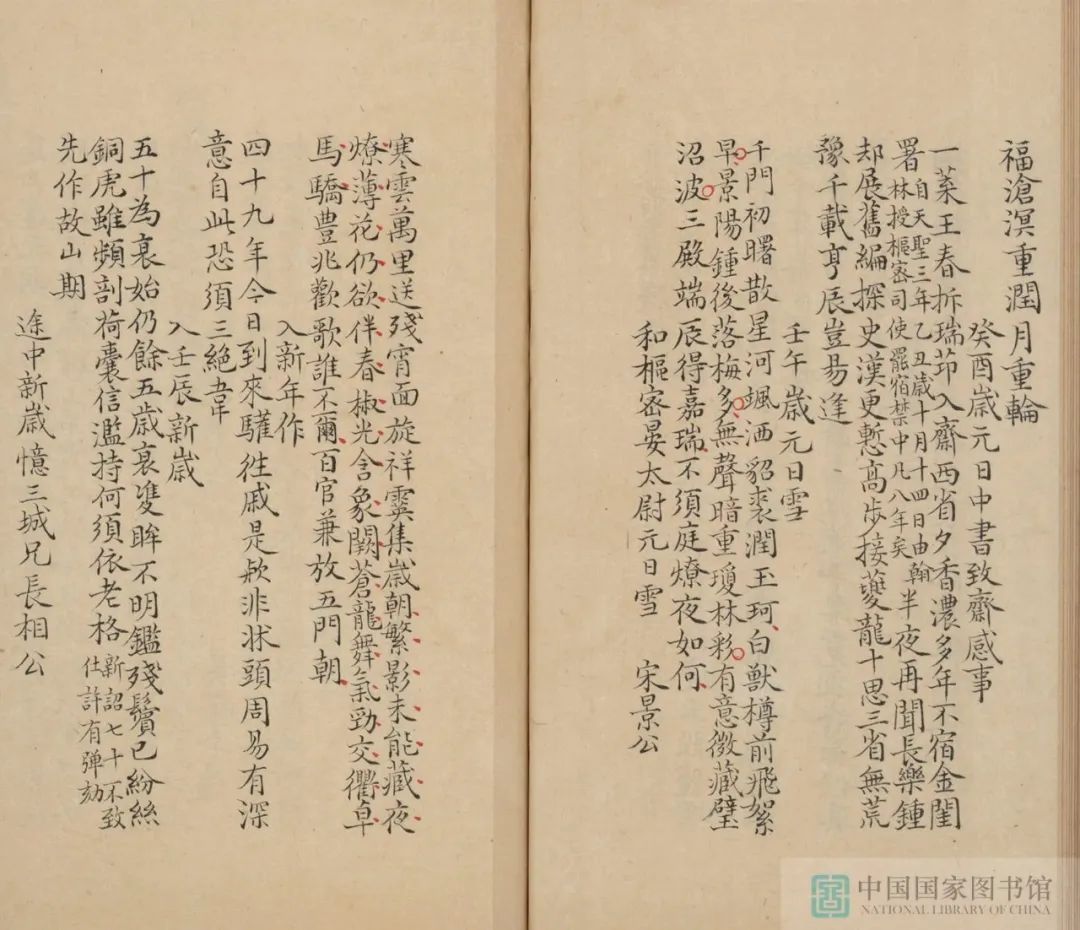 福滄溟重潤月重輪
癸酉歲元日中書致齋感事
一莱王春拆瑞茆入齋西省夕香濃多年不宿金閨
署自天聖三年乙丑歲十月十四日由翰林授樞密司使罷宿禁中凡八年矣半夜再聞長樂鍾
却展舊編探史漢更慙高步接夔龍十思三省無荒
豫千載亨辰豈易逢
壬午歲元日雪
千門初曙散星河颯洒貂裘潤玉珂白獸樽前飛絮
早景陽鍾後落梅多無聲暗重瓊林彩有意微藏璧
沼波三殿端辰得嘉瑞不須庭燎夜如何
和樞密晏太尉元日雪 宋景公
寒雲萬里送殘宵面旋祥霙集歲朝繁影未能藏夜
燎薄花仍欲伴春椒光含象闕蒼龍舞氣勁交衢皁
馬驕豊兆歡歌誰不爾百官兼放五門朝
入新年作
四十九年今日到來驩徃戚是欤非状頭周易有深
意自此恐須三絕韋
入壬辰新歲
五十為衰始仍餘五歲衰㕠眸不明鑑殘鬢已紛絲
銅虎雖頻剖荷囊信濫持何須依老格新詔七十不致仕許有弹劾
先作故山期
途中新歲憶三城兄長相公
中国国家图书馆
NATIONAL LIBRARY OF CHINA